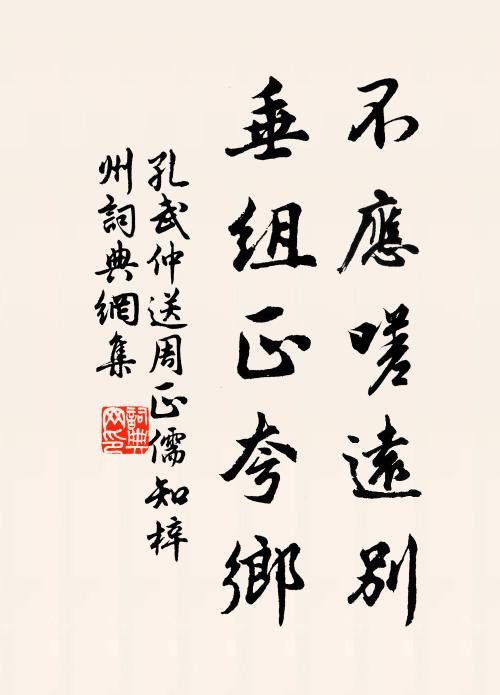 不應嗟遠別
垂組正夸鄉
孔武仲送周正儒知梓
州詞典網集
詞典
网印